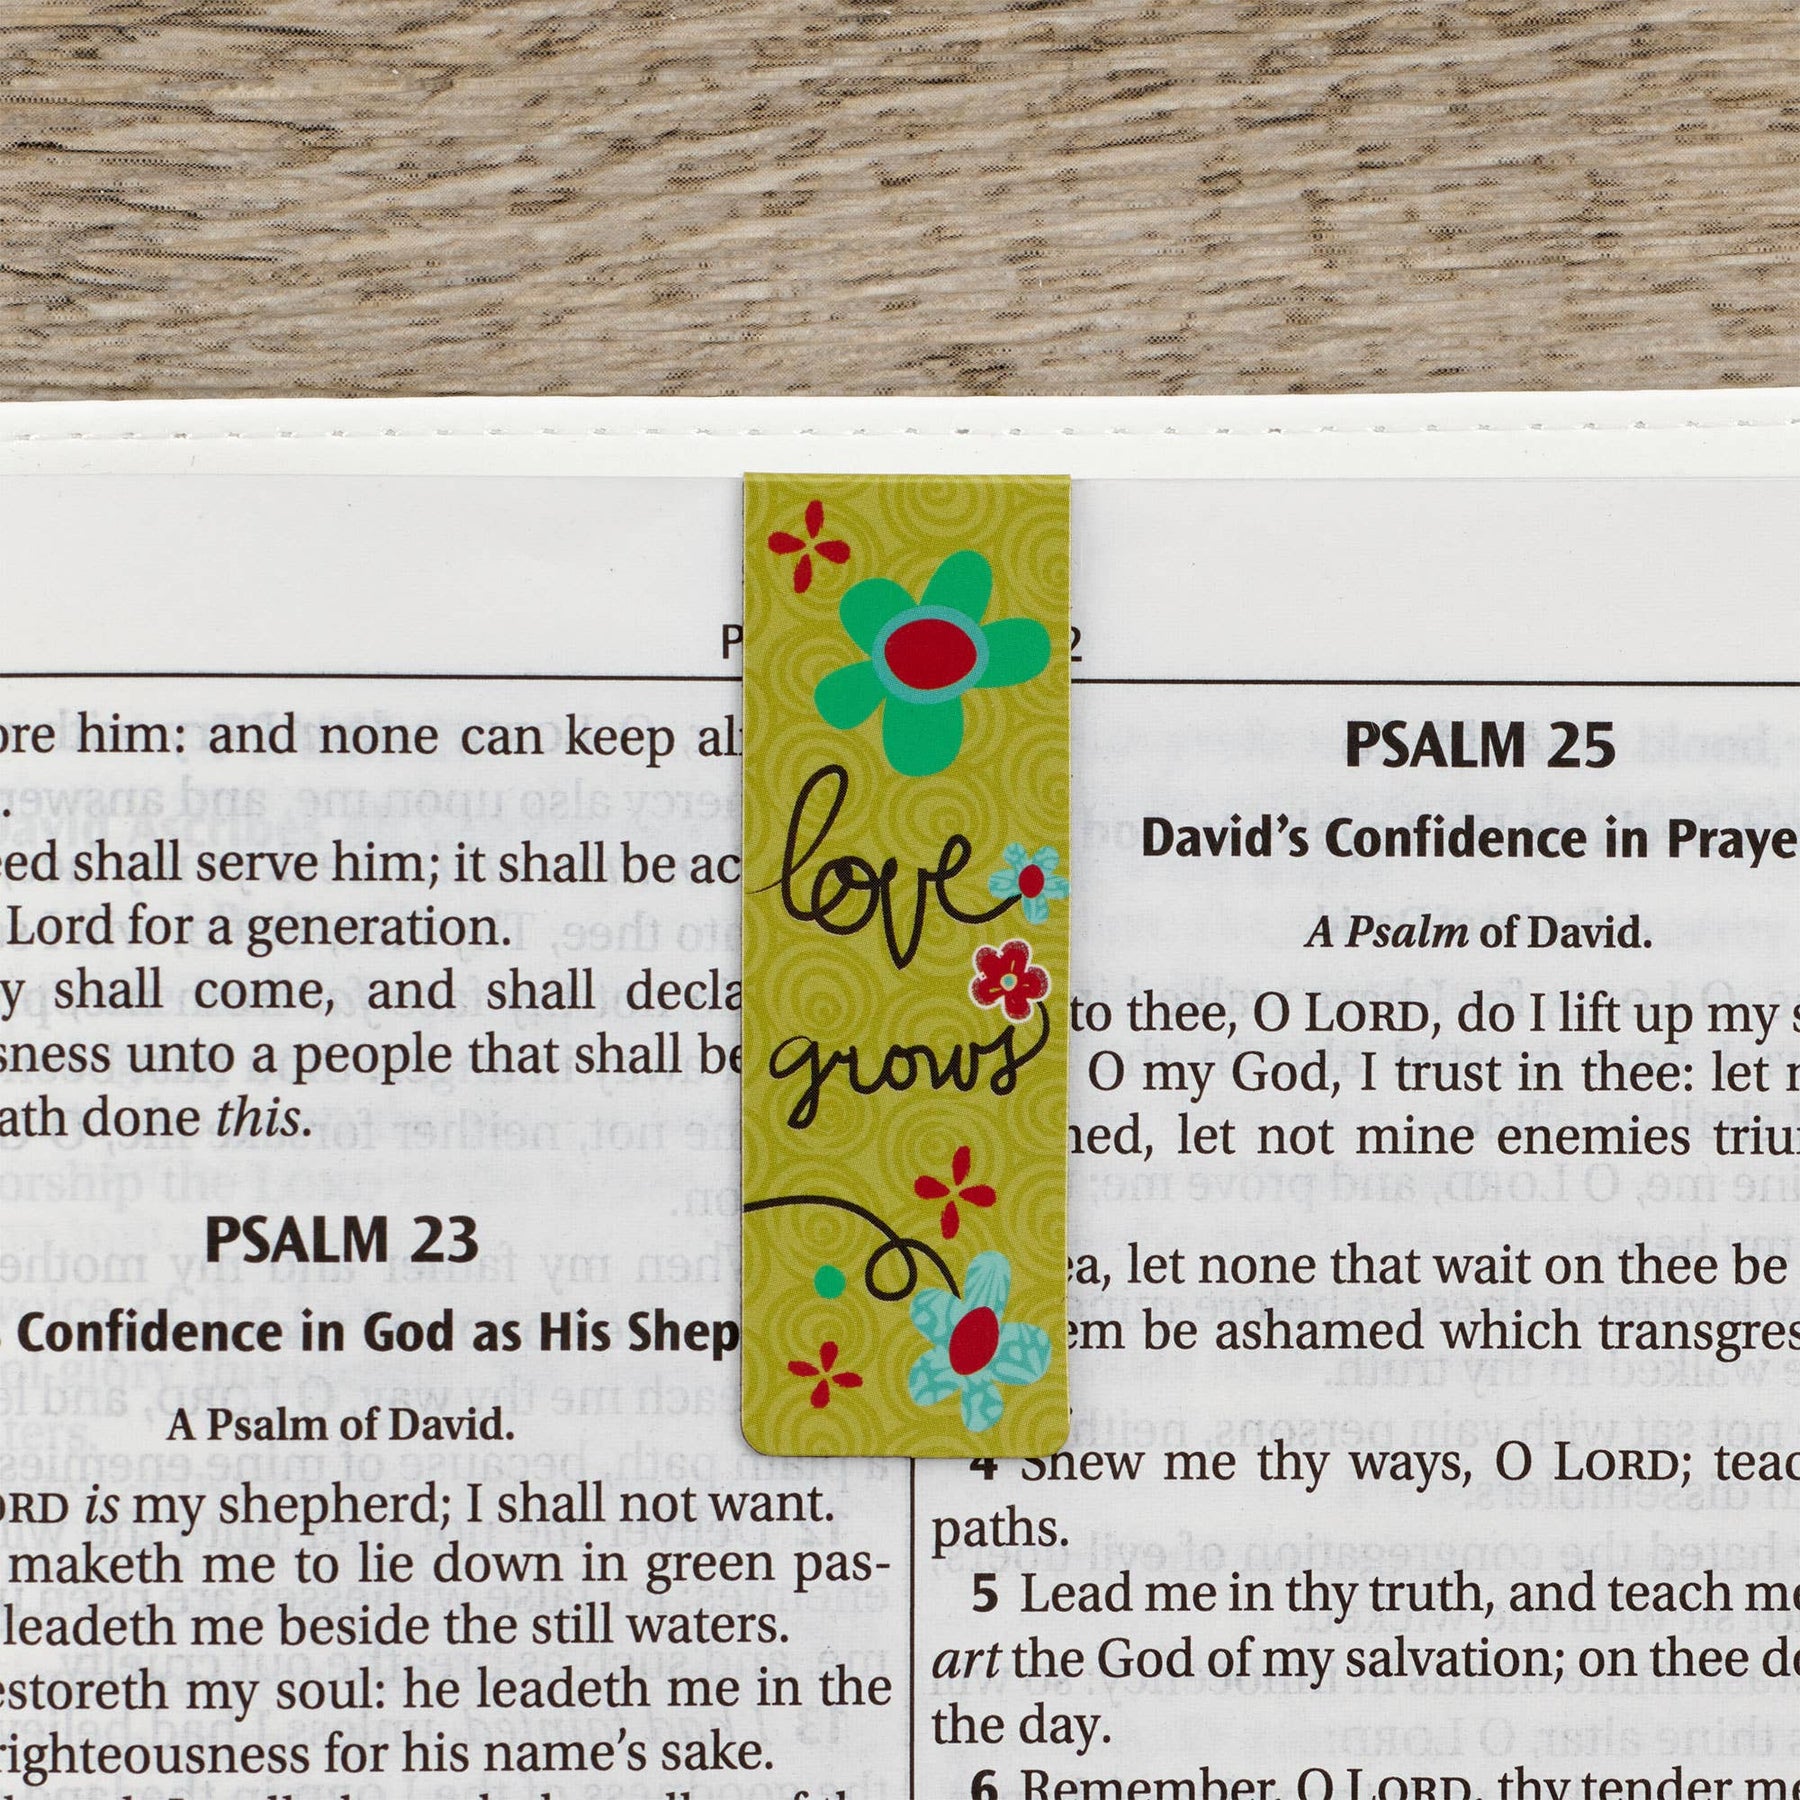 him: and none can keep
shall serve him; it shall be
Lord for a generation.
shall come, and shall
unto a people that shall
done this.
PSALM 23
Confidence in God as His
A Psalm of David.
is my shepherd; I shall not want.
maketh me to lie down in green pas-
leadeth me beside the still waters.
my soul: he leadeth me in the
righteousness for his name's sake.
love
grows
PSALM 25
David's Confidence in
A Psalm of David.
to thee, O LORD, do I lift up my
O my God, I trust in thee: let
let not mine enemies
let none that wait on thee be
be ashamed which
4 Shew me thy ways, O LORD;
paths.
5 Lead me in thy truth, and teach
art the God of my salvation; on thee
the day.
6 Remember, O LORD, thy tender